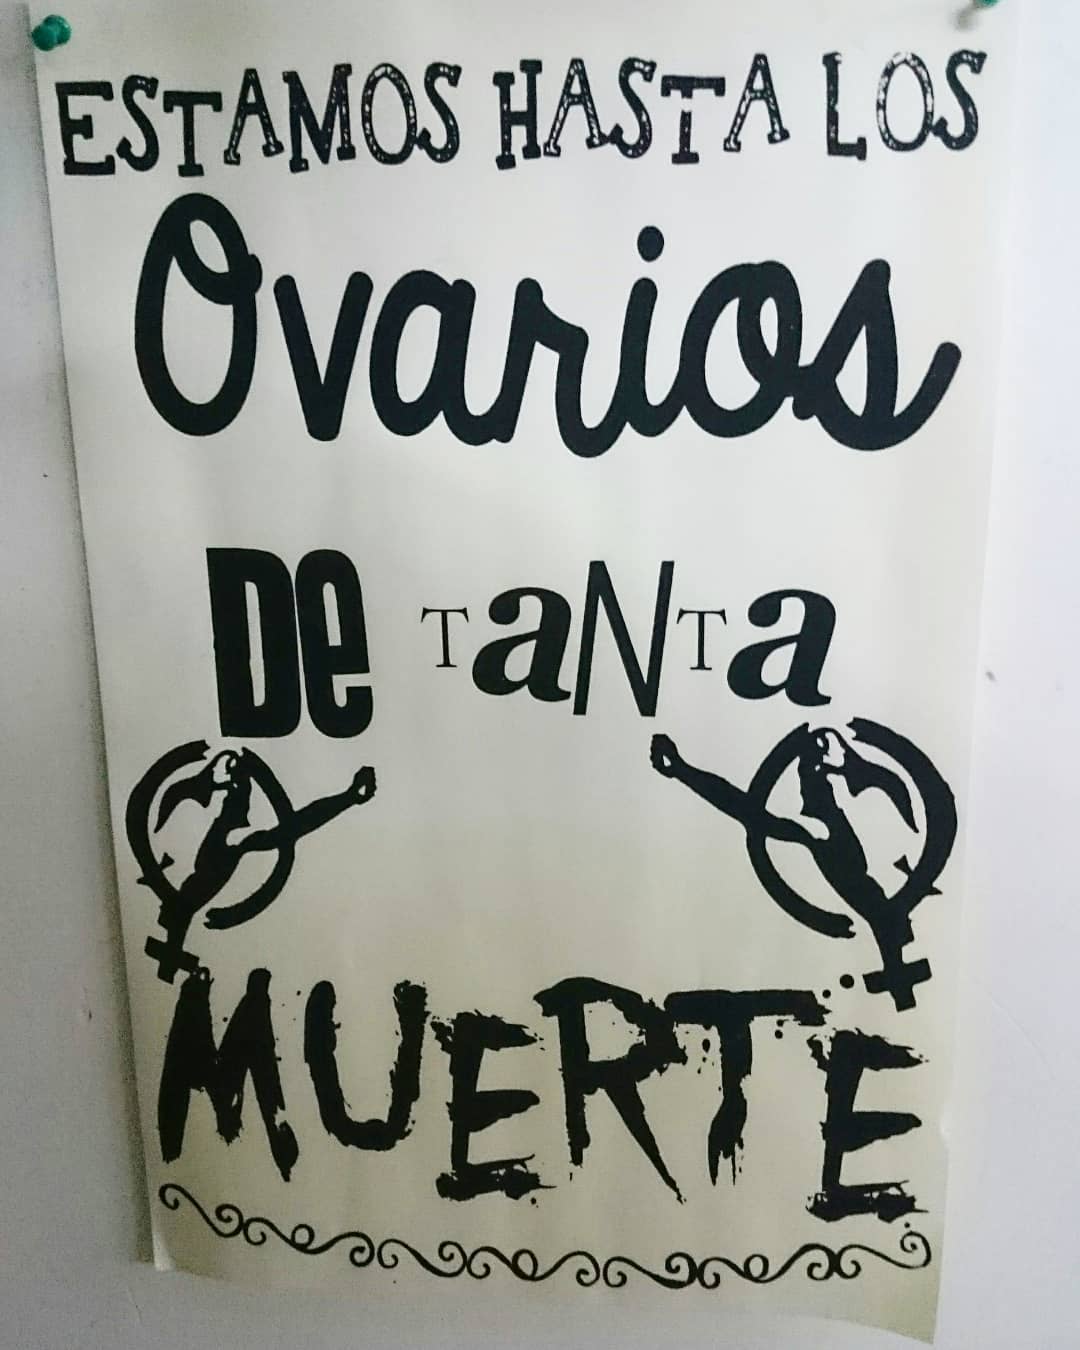 ESTAMOS HASTA LOS
Ovarios
De TaNTa
MUERTE